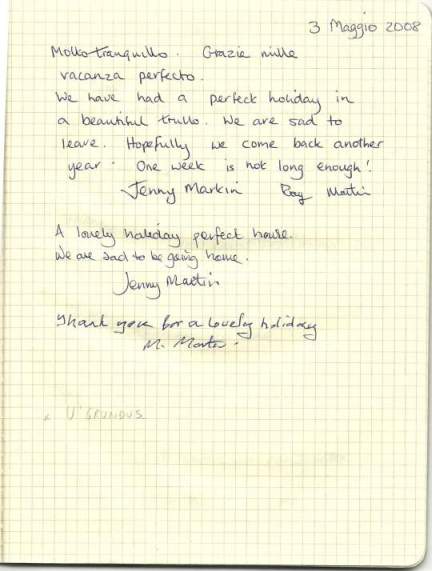 3 Maggio 2008
Molto tranquillo. Grazie mille
vacanza perfecto.
We have had a perfect holiday in
a beautiful trullo. We are sad to
leave. Hopefully we come back another
year. One week is not long enough!
Jenny Martin Roy Martin
A lovely holiday perfect house.
We are sad to be going home.
Jenny Martin
Thank you for a lovely holiday
M. Martin.